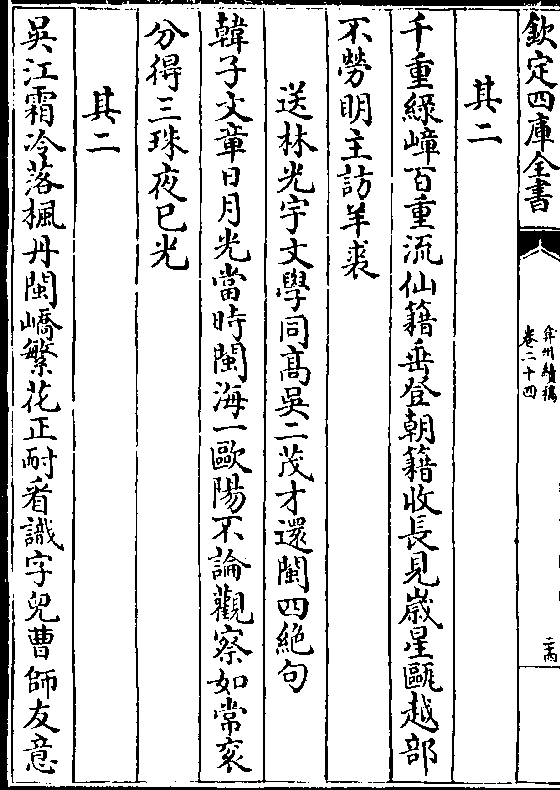 欽定四庫全書
弇州續稿
卷二十四
其二
千重綠嶂百重流仙籍垂登朝籍收長見嵗星甌越部
不勞明主訪羊裘
送林光宇文學同髙吳二茂才還閩四絶句
韓子文章日月光當時閩海一歐陽不論觀察如常衮
分得三珠夜已光
其二
吳江霜冷落楓丹閩嶠繁花正耐看識字兒曹師友意